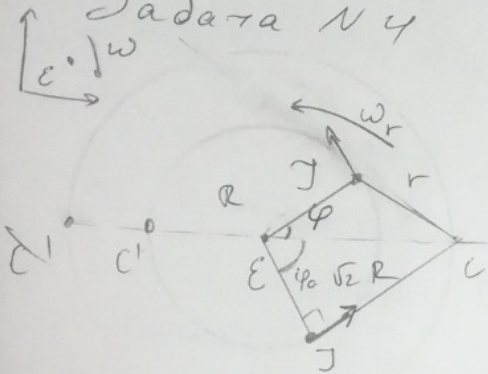 Задача N 4
ε ω
ω_r
J r
R φ
C' C' ε φ₀ √2 R C
J